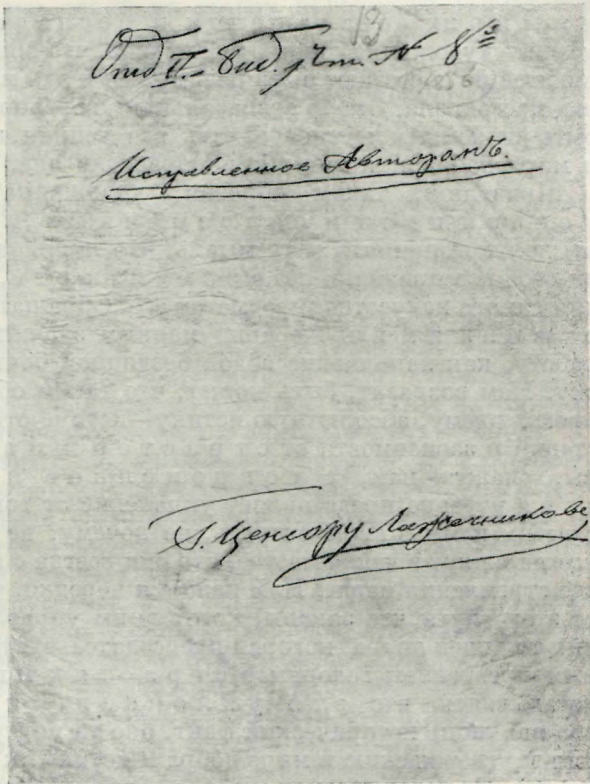 13
Отд. II. Биб. д. Чт. № 8й
1856
Исправленное Авторомъ.
Г. Цензору Лажечникову